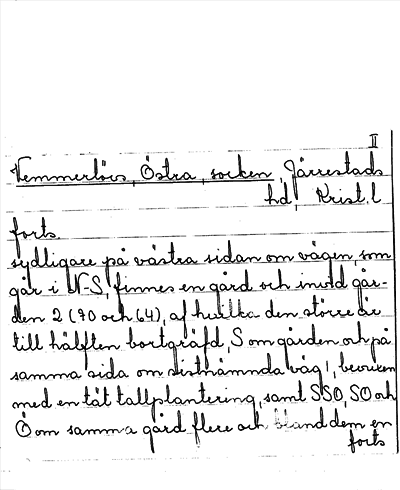 II
Vemmerlövs, Östra, socken, Järrestads
hd, Krist. l
forts.
sydligare på västra sidan om vägen, som
går i N-S, finnes en gård och invid går-
den 2 (90 och 64), af hvilka den större är
till hälften bortgräfd, S om gården och på
samma sida om sistnämnda väg 1, bevuxen
med en tät tallplantering, samt SSO, SO och
Ö om samma gård flere och bland dem en
forts